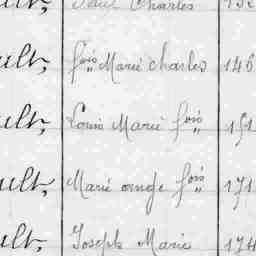 ult, Paul Charles 152
ult, fois Marie charles 146
ult, Louis Marie fois 151
ult, Marie ange fois 171
ult, Joseph Marie 174